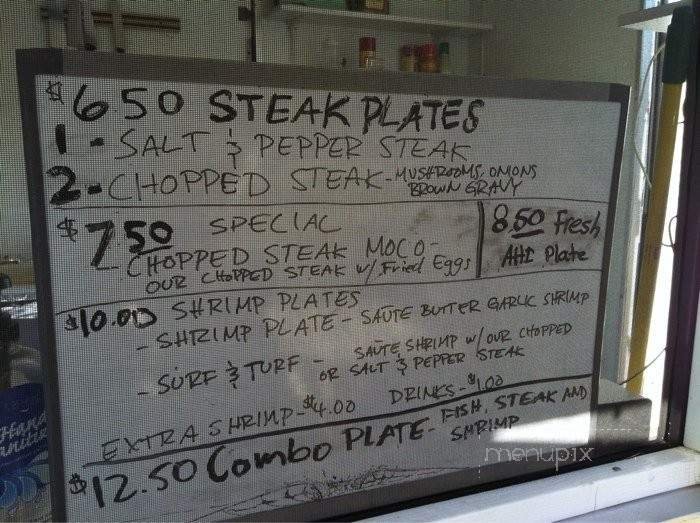 $650 STEAK PLATES
1 - SALT & PEPPER STEAK
2 - CHOPPED STEAK - MUSHROOMS, ONIONS
BROWN GRAVY
$750 SPECIAL
CHOPPED STEAK MOCO -
OUR CHOPPED STEAK w/ Fried Eggs
8.50 Fresh
AHI Plate
$10.00 SHRIMP PLATES
- SHRIMP PLATE - SAUTE BUTTER GARLIC SHRIMP
- SURF & TURF - SAUTE SHRIMP w/ OUR CHOPPED
OR SALT & PEPPER STEAK
EXTRA SHRIMP - $4.00 DRINKS - $1.00
$12.50 Combo PLATE - FISH, STEAK AND
SHRIMP
Hand
menupix